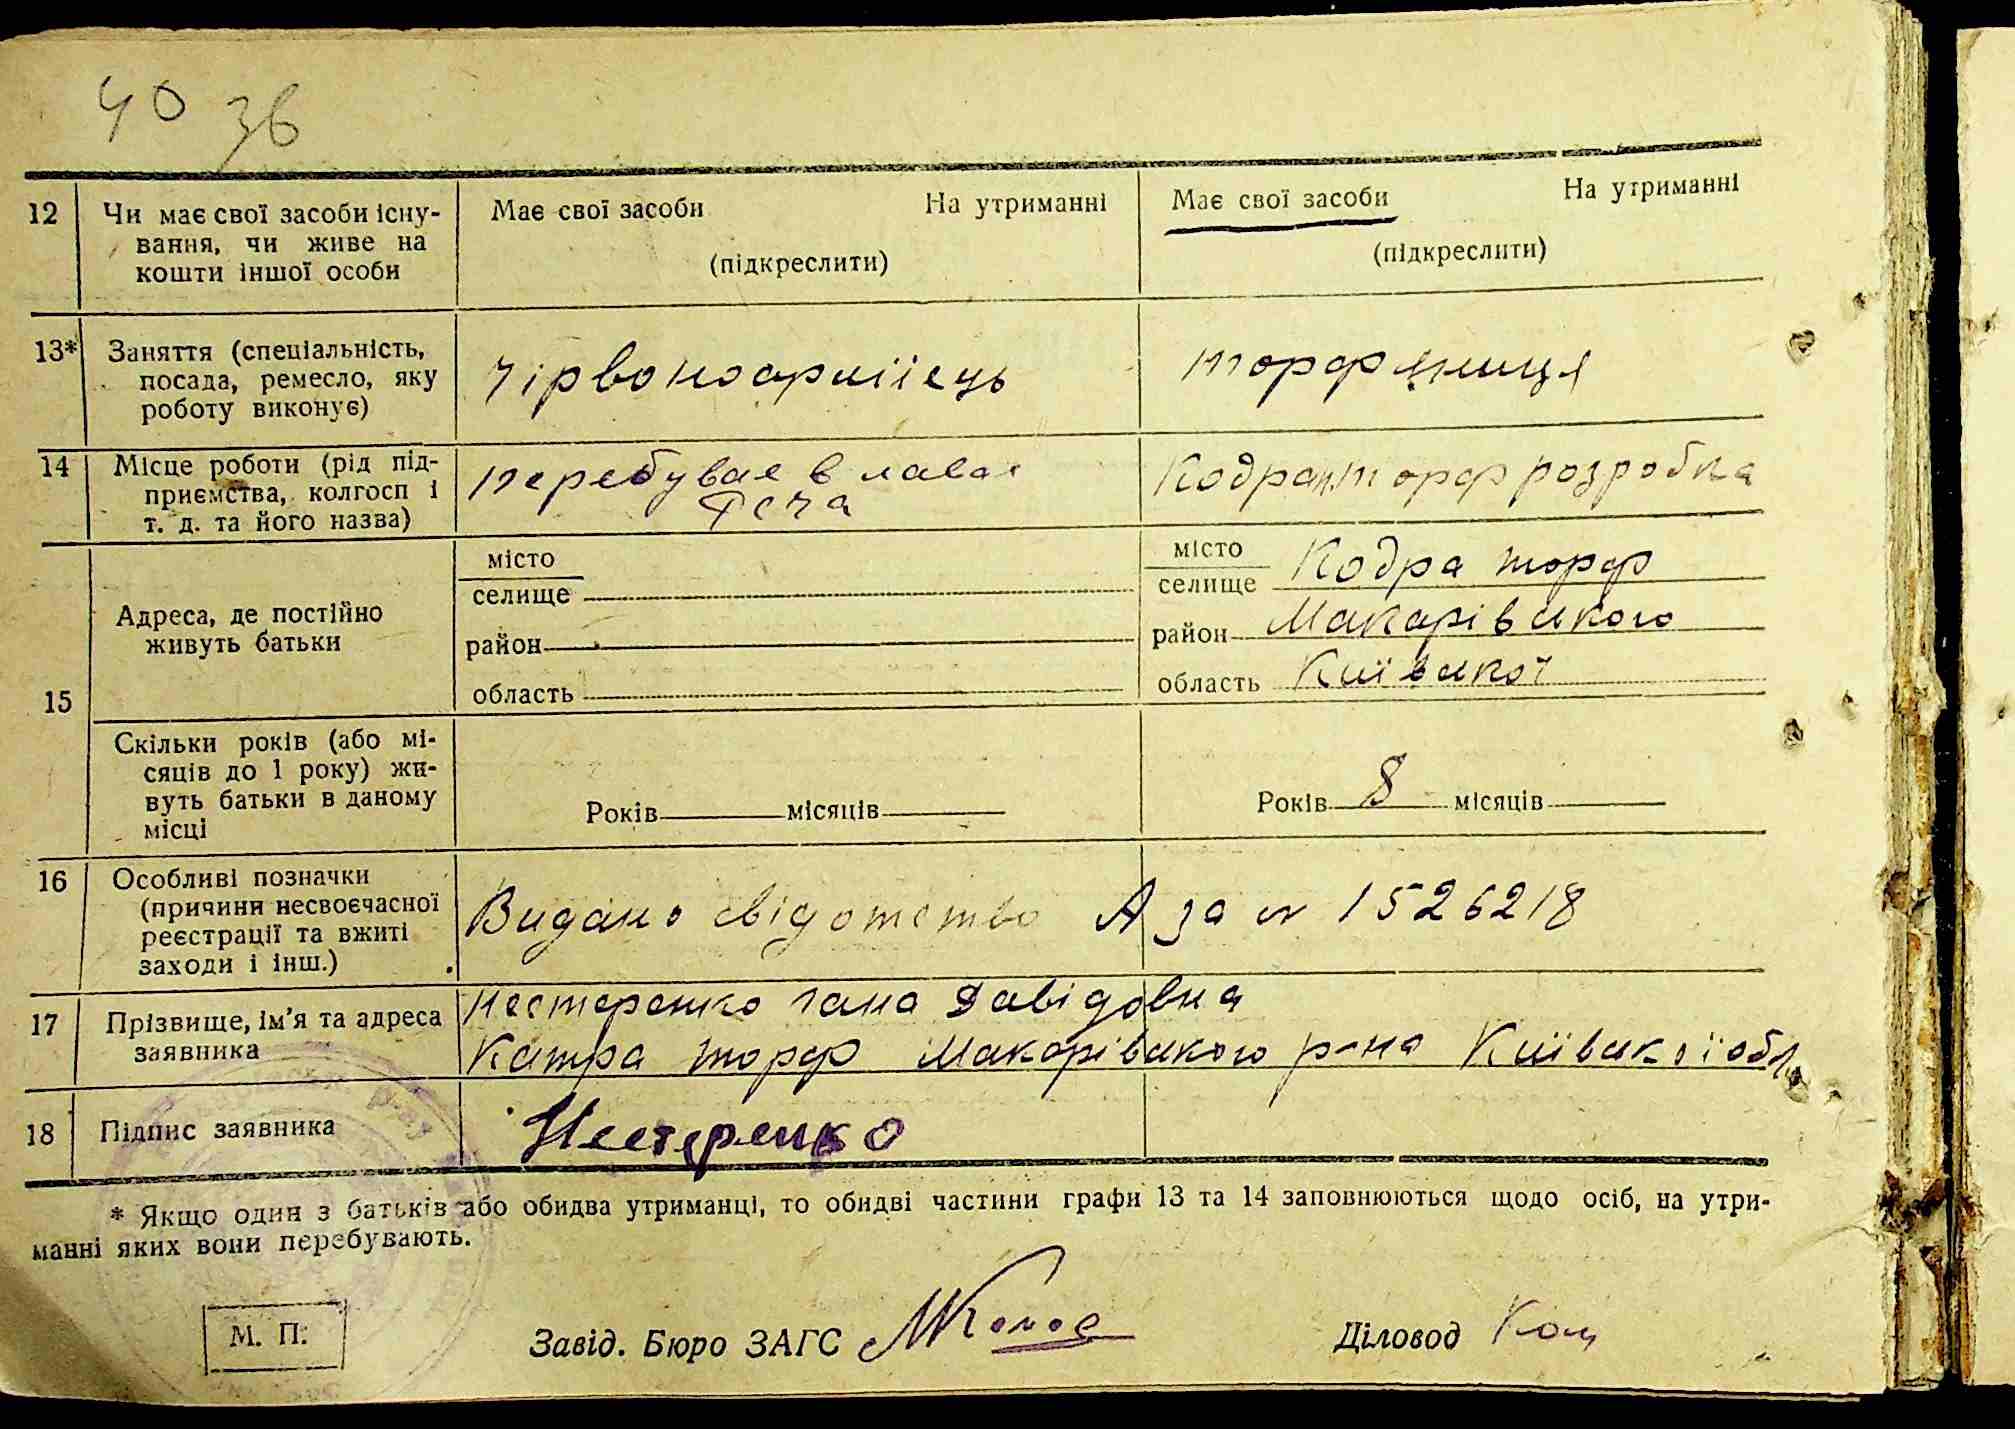 40 зв
12 Чи має свої засоби існу- Має свої засоби На утриманні Має свої засоби На утриманні
вання, чи живе на
кошти іншої особи (підкреслити) (підкреслити)
13* Заняття (спеціальність,
посада, ремесло, яку чірвоноармііець торфяниця
роботу виконує)
14 Місце роботи (рід під- перебувае в лавах Кодра торф розробка
приємства, колгосп і
т. д. та його назва)
15 Адреса, де постійно
живуть батьки
місто
селище
район
область
місто
селище Кодра торф
район Макарівського
область Київської
Скільки років (або мі-
сяців до 1 року) жи-
вуть батьки в даному
місці
Років місяців Років 8 місяців
16 Особливі позначки
(причини несвоєчасної
реєстрації та вжиті
заходи і інш.)
Видано свідотство А за № 1526218
17 Прізвище, ім'я та адреса
заявника
Нестеренко гана Давідовна
Катра торф Макарівського р-на Київської обл.
18 Підпис заявника Нестеренко
* Якщо один з батьків або обидва утриманці, то обидві частини графи 13 та 14 заповнюються щодо осіб, на утри-
манні яких вони перебувають.
М. П. Завід. Бюро ЗАГС Діловод